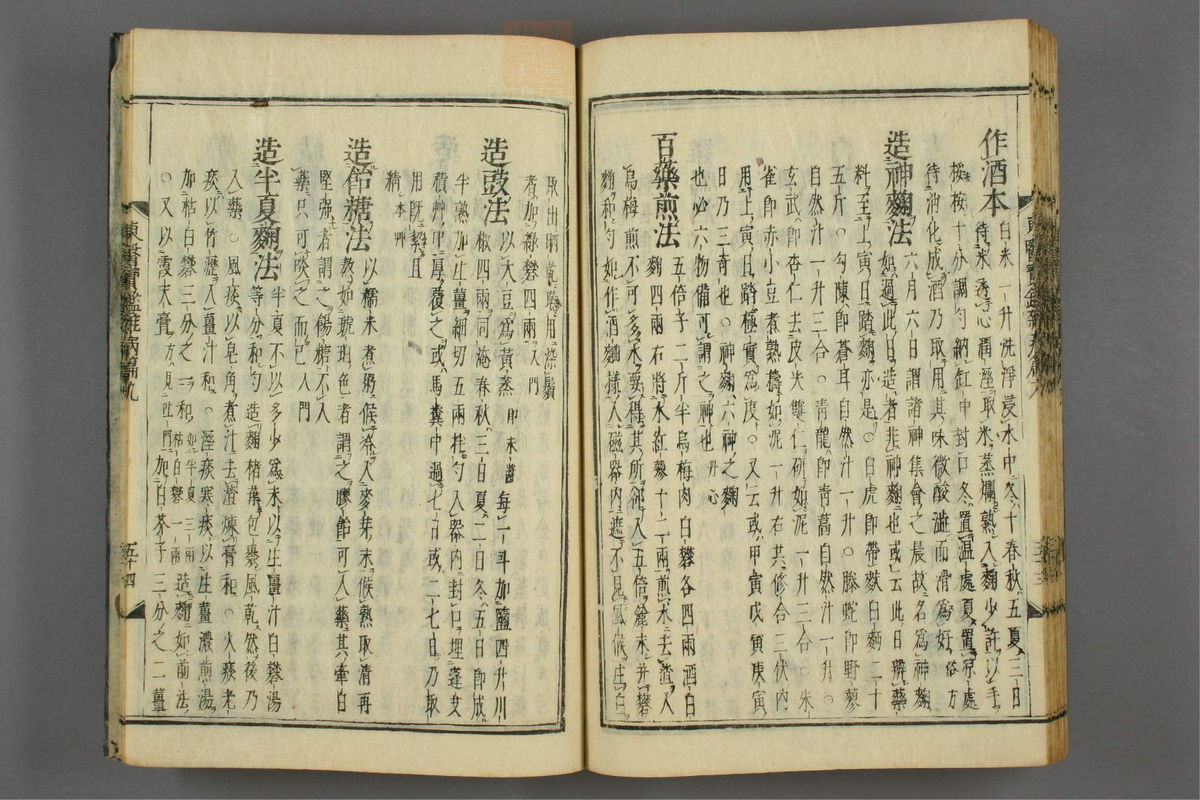 作酒本
白米一升洗淨浸水中冬十春秋五夏三日
待米透心潤濕取米蒸爛熟入麴少許以手
按按十分調勻納缸中封口冬置溫處夏置凉處
待消化成酒乃取用其味微酸澁而滑為好俗方
造神麴法
六月六日謂諸神集會之辰故名為神麴
如過此日造者非神麴也或云此日辨藥
料至上寅日踏麴亦是○白虎卽帶麩白麵二十
五斤勾陳卽蒼耳自然汁一升○螣蛇卽野蓼
自然汁一升三合○靑龍卽靑蒿自然汁一升三合○朱
雀卽赤小豆煮熟擣如泥一升右共修合三伏內
玄武卽杏仁去皮尖雙仁硏如泥一升三合
用上寅日踏極實為度○又云或甲寅戊寅庚寅
日乃三奇也○神麴六神之麴
也必六物備可謂之神也丹心
百藥煎法
五倍子二斤半烏梅肉白礬各四兩酒白
麴四兩右將水紅蓼十二兩煎水去渣入
烏梅煎不可多水要得其所却入五倍麄末幷礬
麴和勻如作酒麯樣入磁器內遮不見風候生白
取出晒乾聽用染鬚
者加綠礬四兩入門
造豉法
以大豆為黃蒸每一斗加鹽四升川
椒四兩同淹春秋三日夏二日冬五日卽成
半熟加生薑細切五兩拌勻入器內封口埋蓬艾
積艸中厚覆之或馬糞中過七日或二七日乃取
用旣潔且
精本艸
造飴糖法
以糯米煮粥候冷入麥芽末候熟取淸再
熬如琥珀色者謂之膠飴可入藥其牽白
堅强者謂之餳糖不入
藥只可啖之而已入門
造半夏麴法
半夏不以多少為末以生薑汁白礬湯
等分和勻造麴楮葉包褁風乾然後乃
入藥○風痰以皂角煮汁去渣煉膏和○火痰老
痰以竹瀝入薑汁和○濕痰寒痰以生薑濃煎湯
加枯白礬三分之一和如半夏三兩枯白礬一兩造麴如前法
○又以霞天膏方見吐門加白芥子三分之二薑
東醫寶鑑雜病篇九
五十四